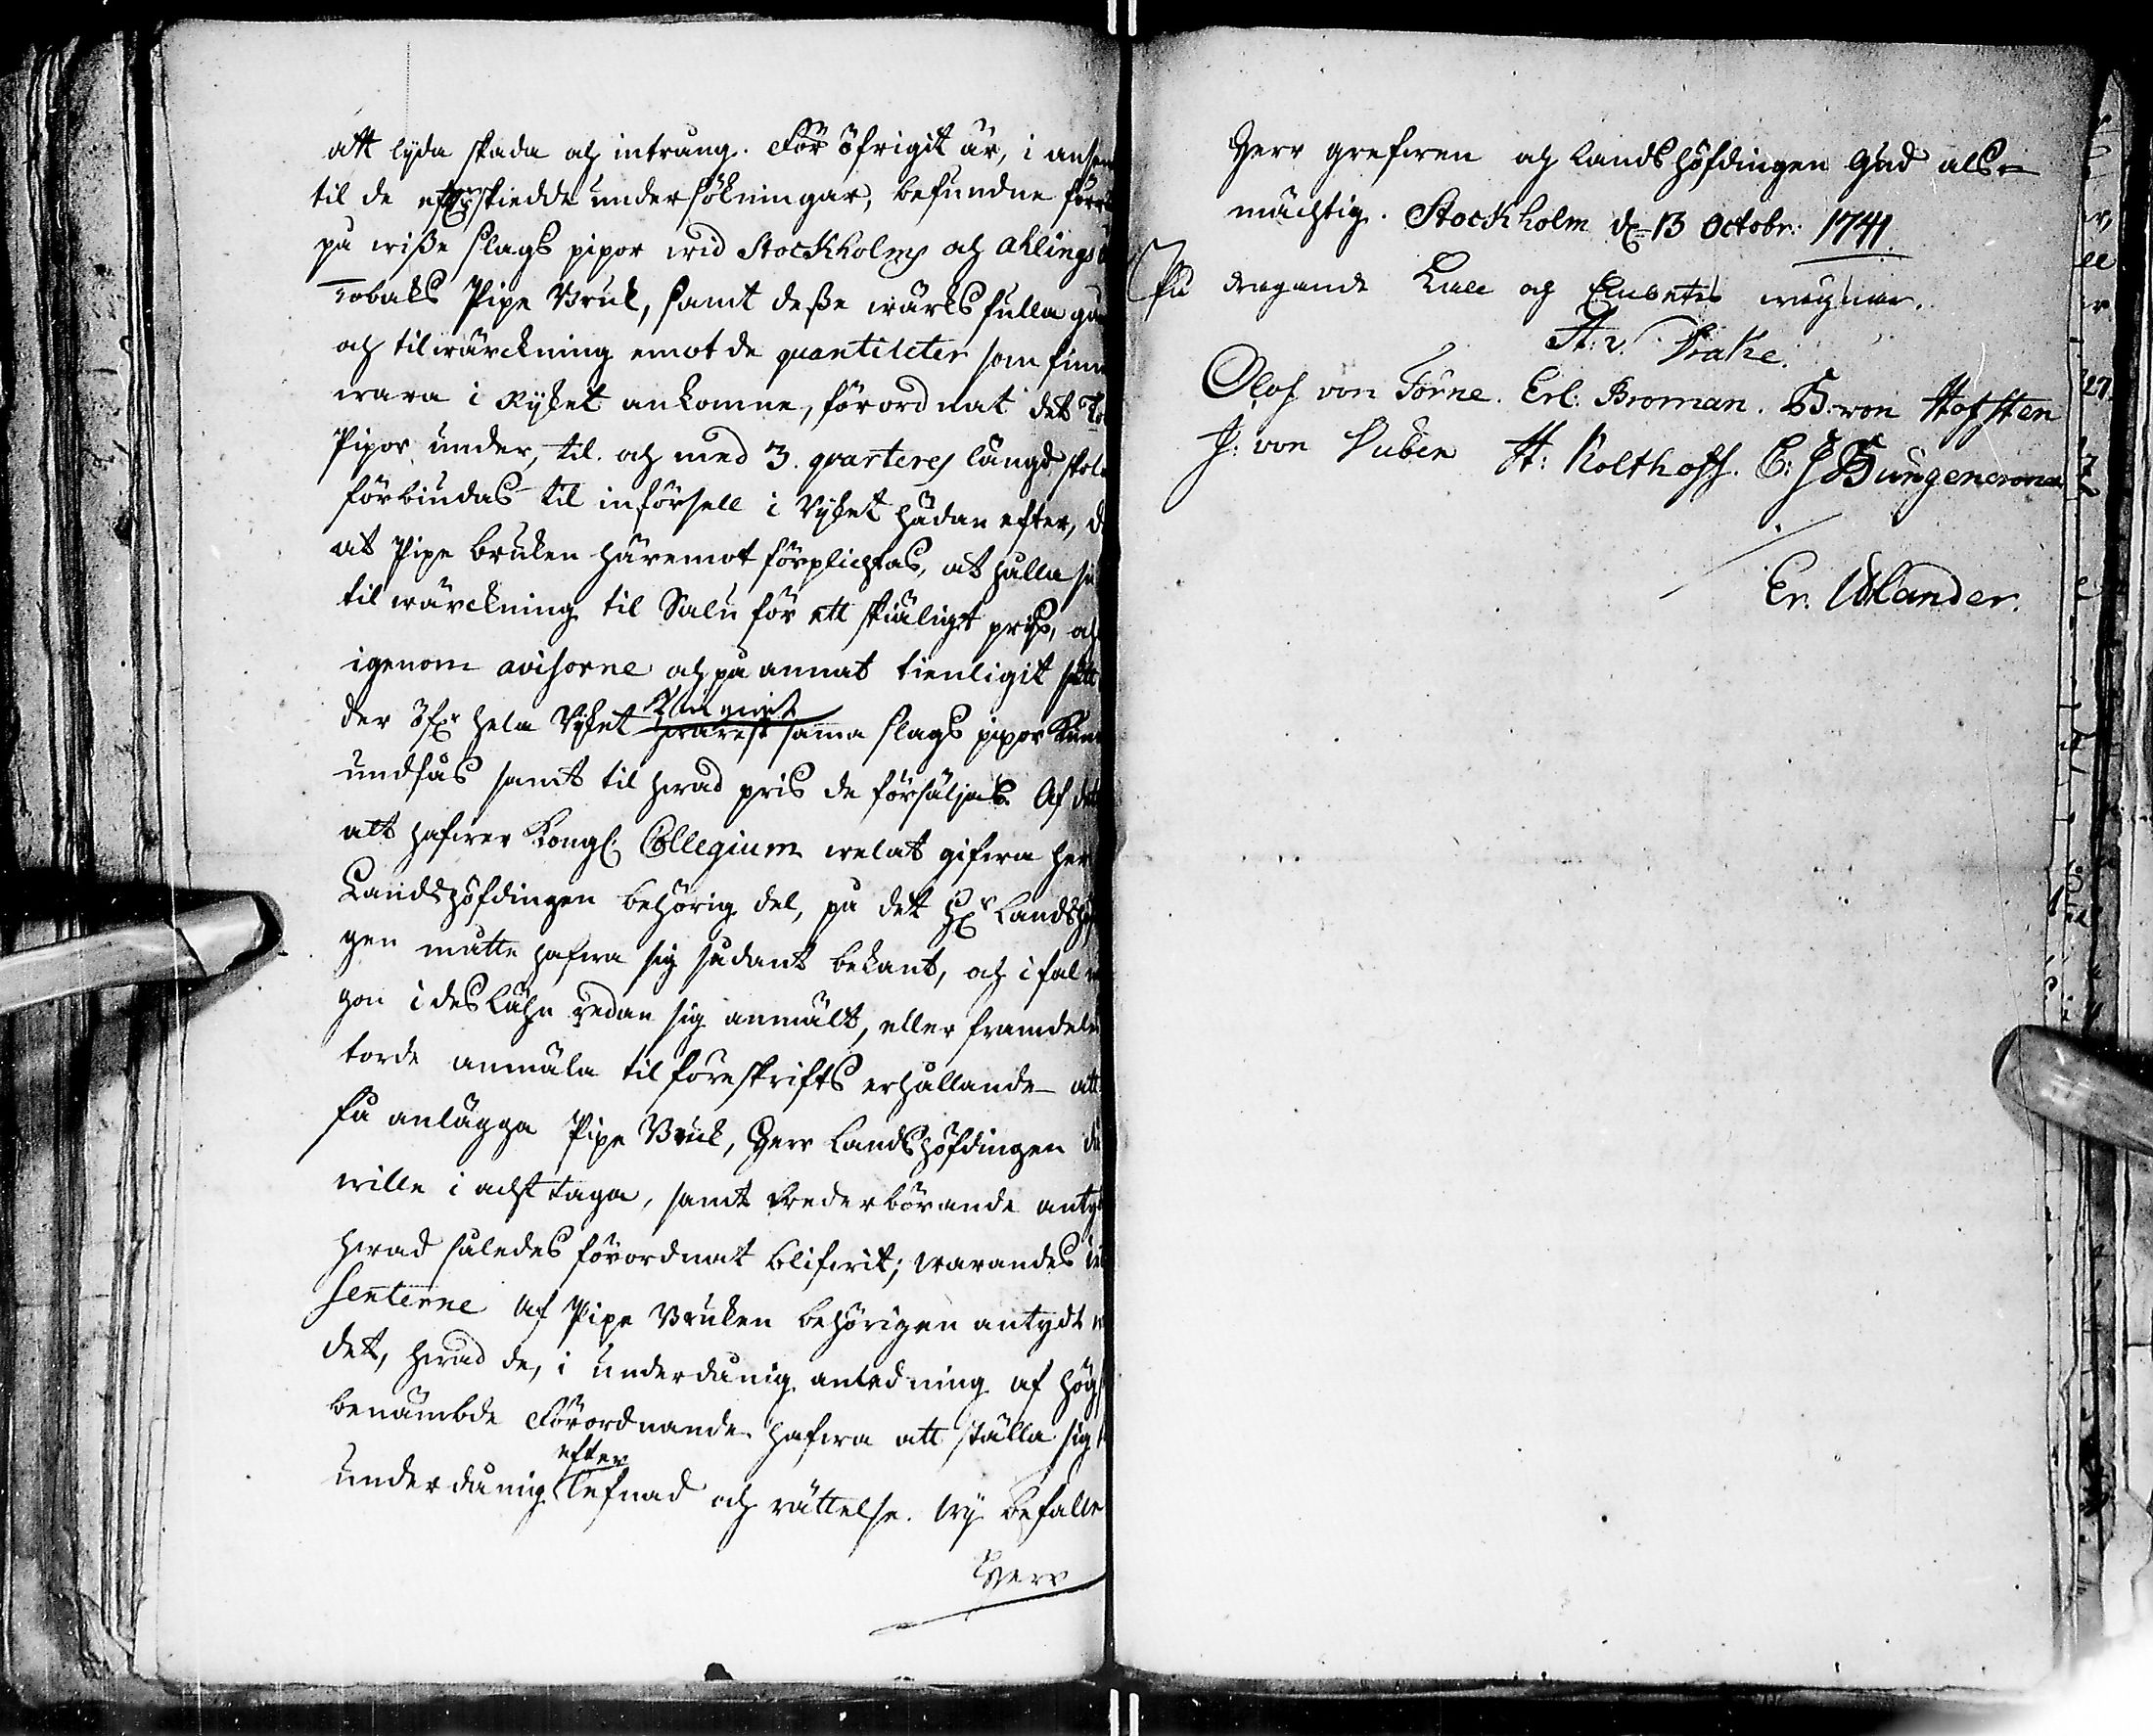 att lyda skada och intrång. För öfrigit är, i ansen
til de efterskiedde undersökningar, befundne förr
på wiße slags pipor wid Stockholms och Ahlings
Tobaks Pipe Bruk, samt deße wärks fulla gån
och tilwärckning emot de quantiteter som finn
wara i Ryket ankomne, förordnat det To
Pipor under, til och med 3. qvarters längd skola
förbiudas til införsell i Ryket hädan efter, d
at Pipe bruken häremot förplichtas, at hålla si
tilwärckning til Salu för ett skiäligt pris, och
igenom avisorne och på annat tienligit sätt
der öfr hela Ryket hwarest sama slags pipor kun
undfås samt til hwad pris de försäljas. Af det
att hafwer Kongl: Collegium welat gifwa her
Landshöfdingen behörig del, på det Hr Landshöf
gen måtte hafwa sig sådant bekant, och i fal n
gon i des Lähn redan sig anmält, eller framdeles
torde anmäla til föreskrifts erhållande att
få anlägga Pipe Bruk, Herr Landshöfdingen då
wille i acht taga, samt wederbörande anty
hwad således förordnat blifwit; warandes
senterne af Pipe Bruken behörigen antydt
det, hwad de, i underdånig anledning af hög
benämbde Förordnande hafwa att ställa sig
efter
underdånig lefnad och rättelse. Wij befalle
Herr
Herr grefwen och Landshöfdingen Gud als=
mächtig. Stockholm d. 13 Octobr: 1741.
På dragande Kall och Embetes wägnar.
A: v. Drake.
Olof von Törne. Erl: Broman. B: von Hofsten
J: von Duben H: Kolthoff. C: J Bungencrona
Er. Wlander.